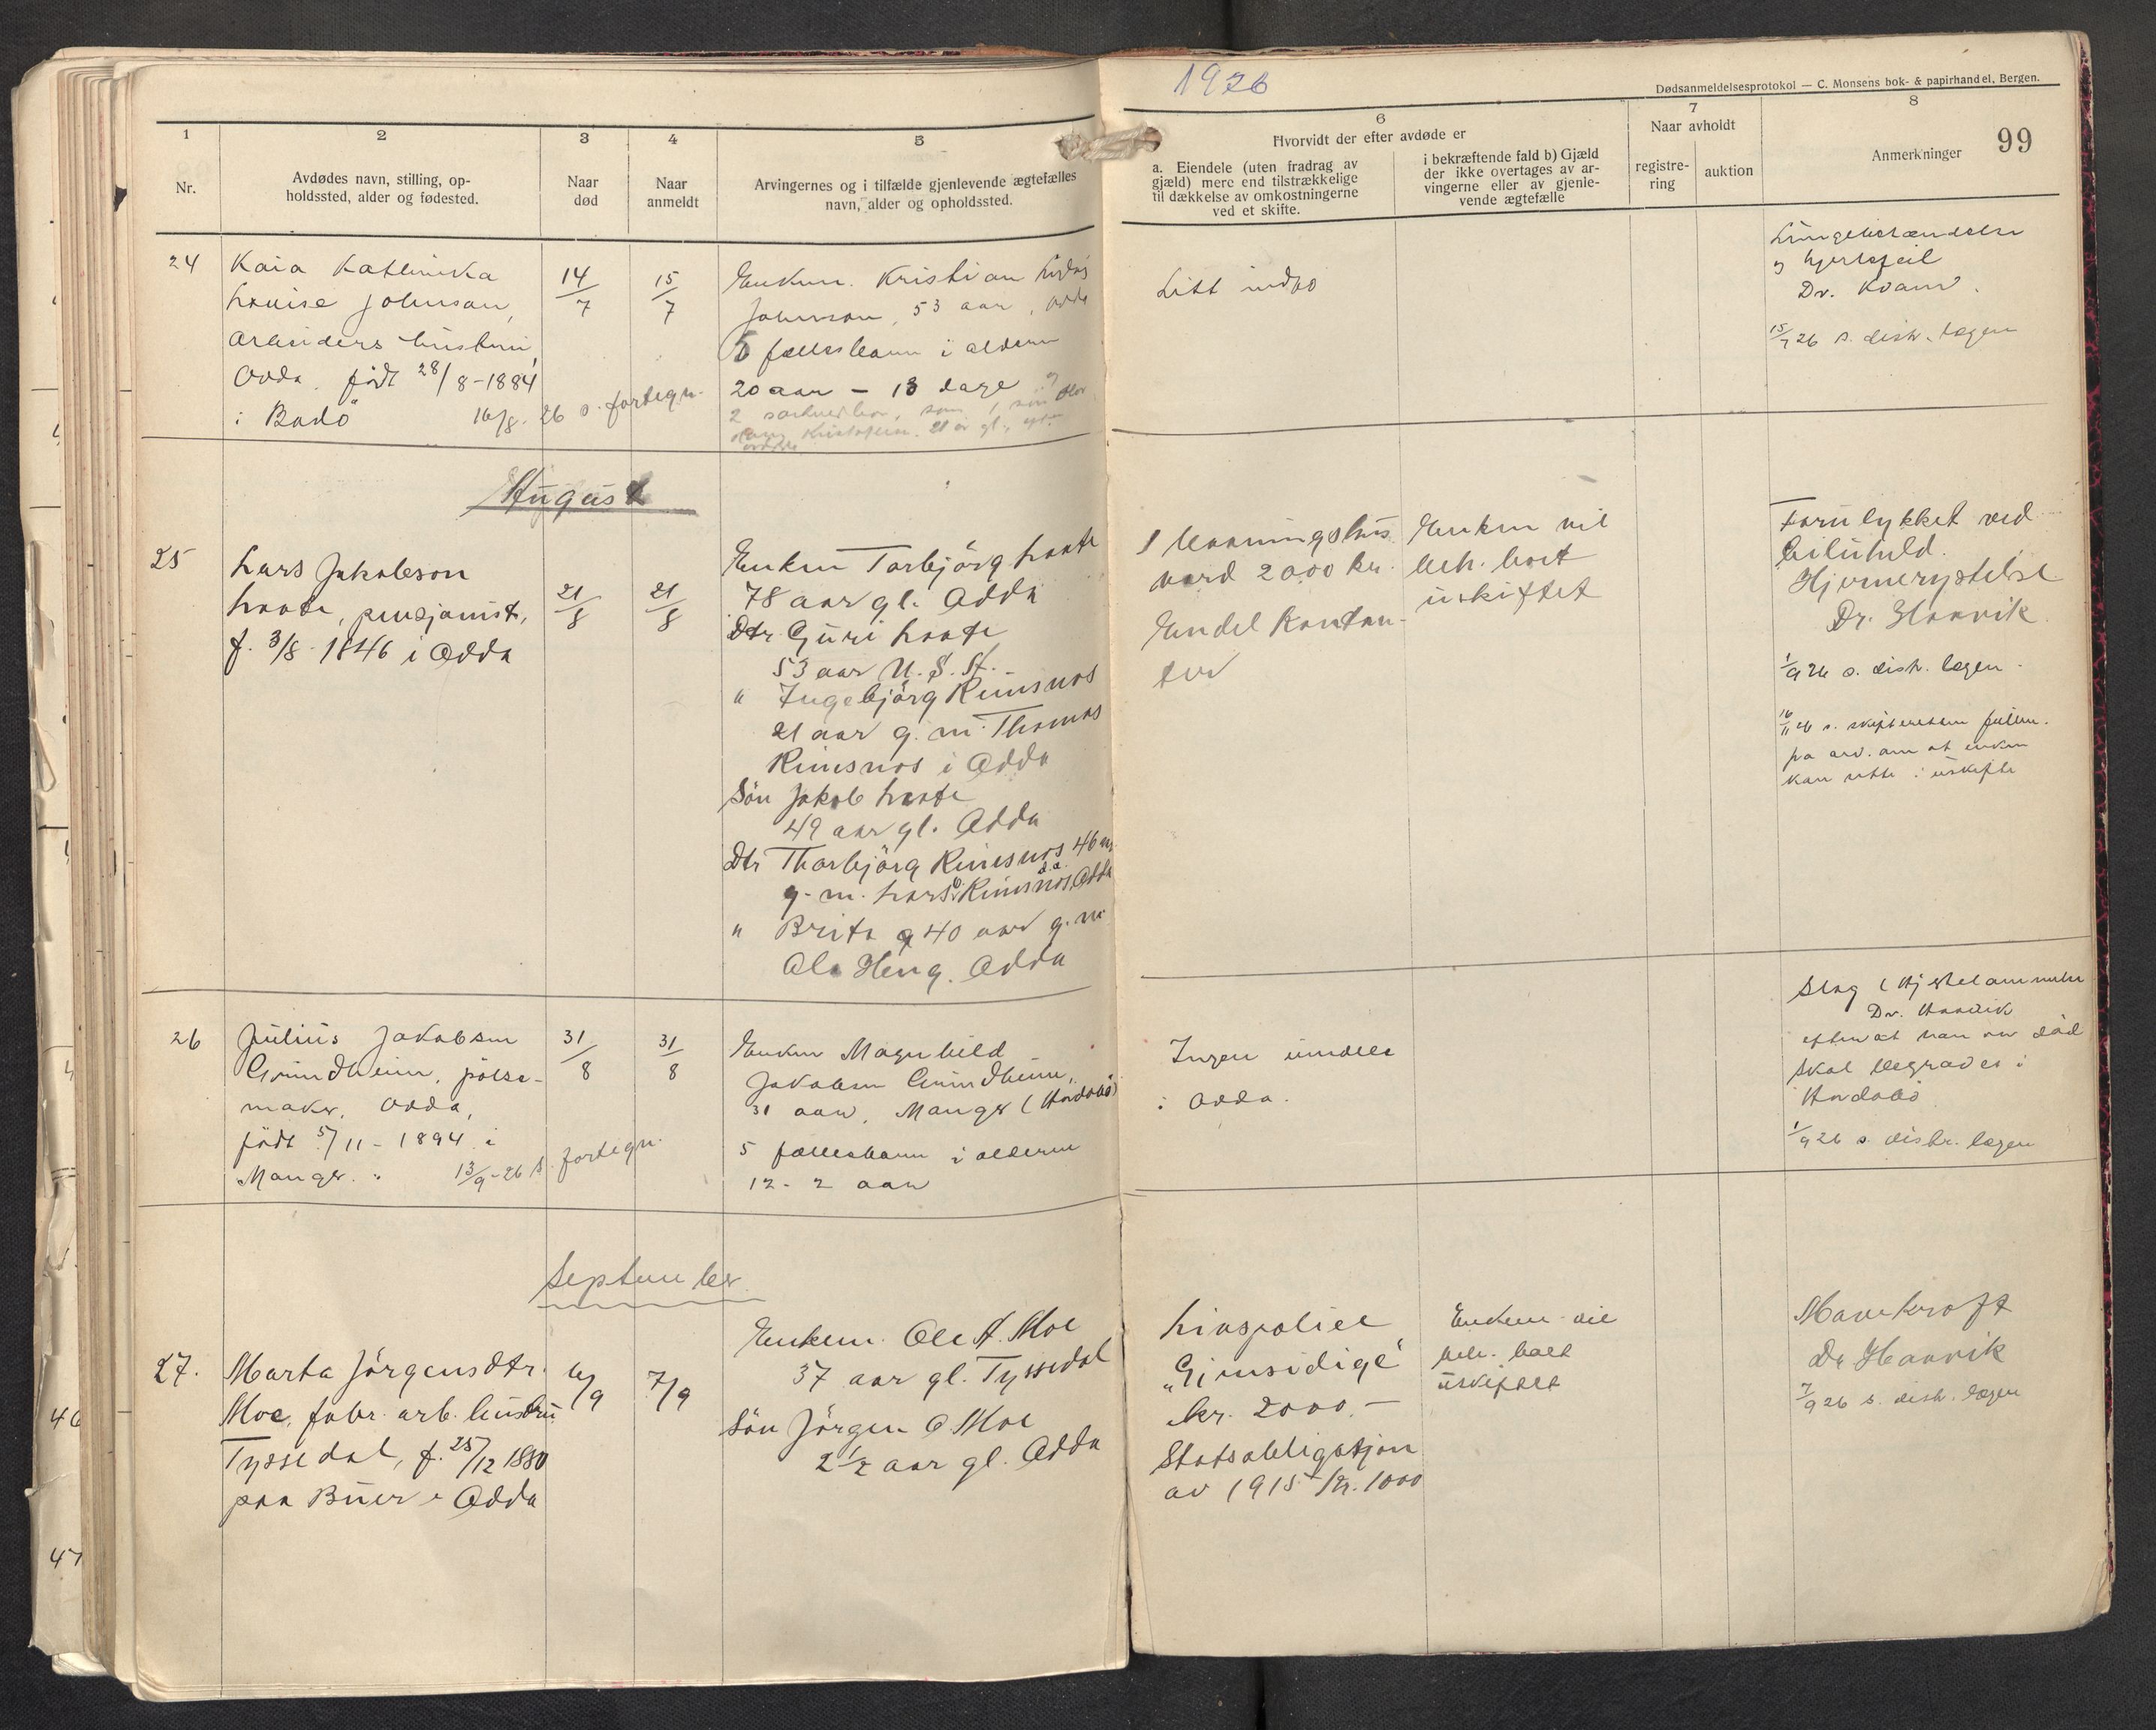 1926
Dødsanmeldelsesprotokol — C. Monsens bok- & papirhandel, Bergen.
99
1
Nr.
2
Avdødes navn, stilling, op-
holdssted, alder og fødested.
3
Naar
død
4
Naar
anmeldt
5
Arvingernes og i tilfælde gjenlevende ægtefælles
navn, alder og opholdssted.
6
Hvorvidt der efter avdøde er
a. Eiendele (uten fradrag av
gjæld) mere end tilstrækkelige
til dækkelse av omkostningerne
ved et skifte.
i bekræftende fald b) Gjæld
der ikke overtages av ar-
vingerne eller av gjenle-
vende ægtefælle
7
Naar avholdt
registre-
ring
auktion
8
Anmerkninger
24
Kaia Kathinka
Louise Johnson,
arbeiders hustru,
Odda. født 28/8-1884
i Bodö
16/8. 26 s. fortegn.
14/7
15/7
Enkem. Kristian
Johnson, 53 aar, Odda
fællesbarn i alderen
20 aar - 13 dage
Litt indbo
Lungebetændelse
og hjertefeil
Dr. Kvam.
15/7 26 s. distr. lægen
August
25
Lars Jakobson
Laate, pensjonist,
f. 3/8 1846 i Odda
21/8
21/8
Enken Torbjörg Laate
78 aar gl. Odda
Dtr. Guri Laate
53 aar U. S. St.
" Ingebjörg Reinsnos
21 aar g. m. Thomas
Reinsnos i Odda
Sön Jakob Laate
49 aar gl. Odda
Dtr Thorbjörg Reinsnos 46
g. m. Lars Reinsnos Odda
" Brita 40 aar g. m.
Ola Heng. Odda
1 vaaningshus
verd 2000 kr.
Endel Kontan-
ter
Enken vil
beh. boet
uskiftet
Forulykket ved
biluheld.
Hjernerystelse
Dr. Haavik.
1/9 26 s. distr. lægen.
s. skifteretten fullm.
pa arv. om at enken
kan sitte i uskifte
26
Julius Jakobsen
Grindheim, pölse-
maker, Odda,
födt 5/11-1894 i
Manger.
13/9-26 s. fortegn.
31/8
31/8
Enken Magnhild
Jakobsen Grindheim,
31 aar, Manger
5 fællesbarn i alderen
12-2 aar
Ingen eiendele
i Odda.
Slag
Dr. Haavik
efter at han var död
Skal begraves i
1/9 26 s. distr. lægen
September
27.
Marta Jörgensdtr.
Moe, fabr. arb. hustru
Tyssedal, f. 25/12 1880
paa Buer i Odda
6/9
7/9
Enkem. Ole A. Moe
37 aar gl. Tyssedal
Sön Jörgen O. Moe
2 1/2 aar gl. Odda
Livspolice
„Gjensidige"
kr. 2000.-
Statsobligatjon
av 1915 kr. 1000
Enkem. vil
beh. boet
uskiftet
Mavekraft
Dr Haavik
7/9 26 s. distr. lægen
46
47